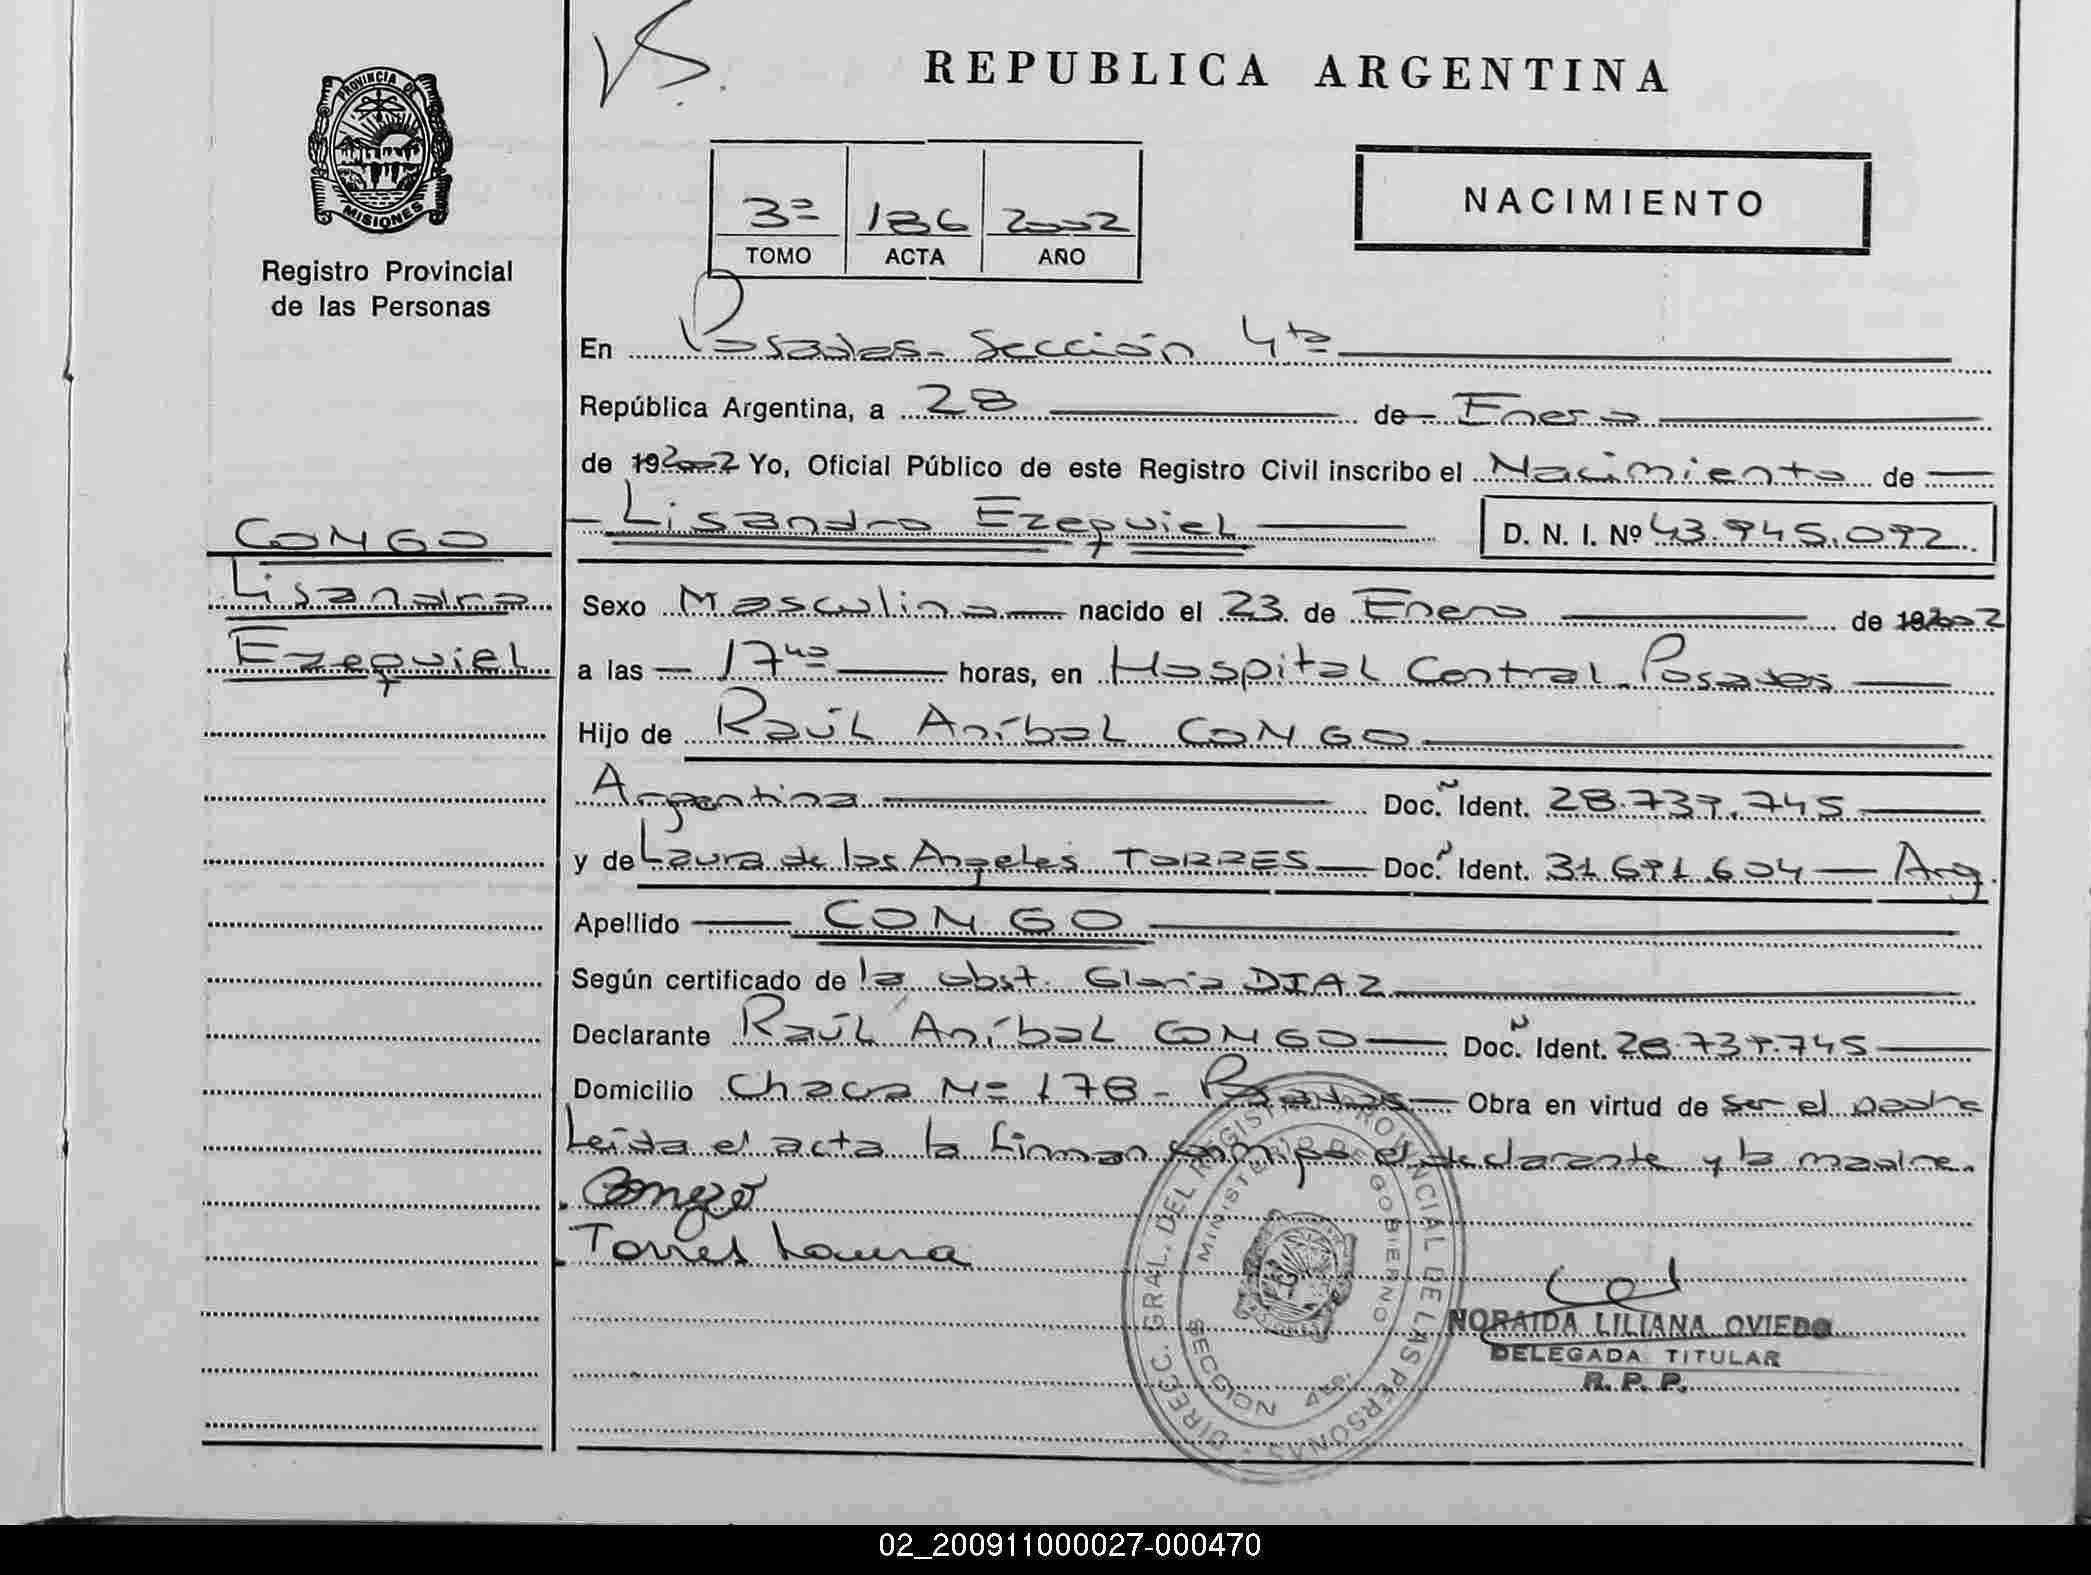 VS.
REPUBLICA ARGENTINA
PROVINCIA DE
MISIONES
Registro Provincial
de las Personas
3º 186 2002
TOMO ACTA AÑO
NACIMIENTO
En Posadas - Sección 4ta
República Argentina, a 28 de Enero
de 192002 Yo, Oficial Público de este Registro Civil inscribo el Nacimiento de
Lisandro Ezequiel D. N. I. Nº 43.945.092
CONGO
Lisandro
Ezequiel
Sexo Masculino nacido el 23 de Enero de 192002
a las 17 40 horas, en Hospital Central Posadas
Hijo de Raúl Aníbal CONGO
Argentina Doc. Ident. 28.737.745
y de Laura de los Angeles TORRES Doc. Ident. 31.691.604 Arg.
Apellido CONGO
Según certificado de la obst. Gloria DIAZ
Declarante Raúl Aníbal CONGO Doc. Ident. 28.737.745
Domicilio Chacra Nº 178 - Posadas Obra en virtud de ser el padre
Leída el acta la firman conmigo el declarante y la madre.
Congo
Torres Laura
DIREC. GRAL. DEL REGISTRO PROVINCIAL DE LAS PERSONAS
MINISTERIO DE GOBIERNO
SECCION 4ta.
NORAIDA LILIANA OVIEDO
DELEGADA TITULAR
R. P. P.
02_200911000027-000470